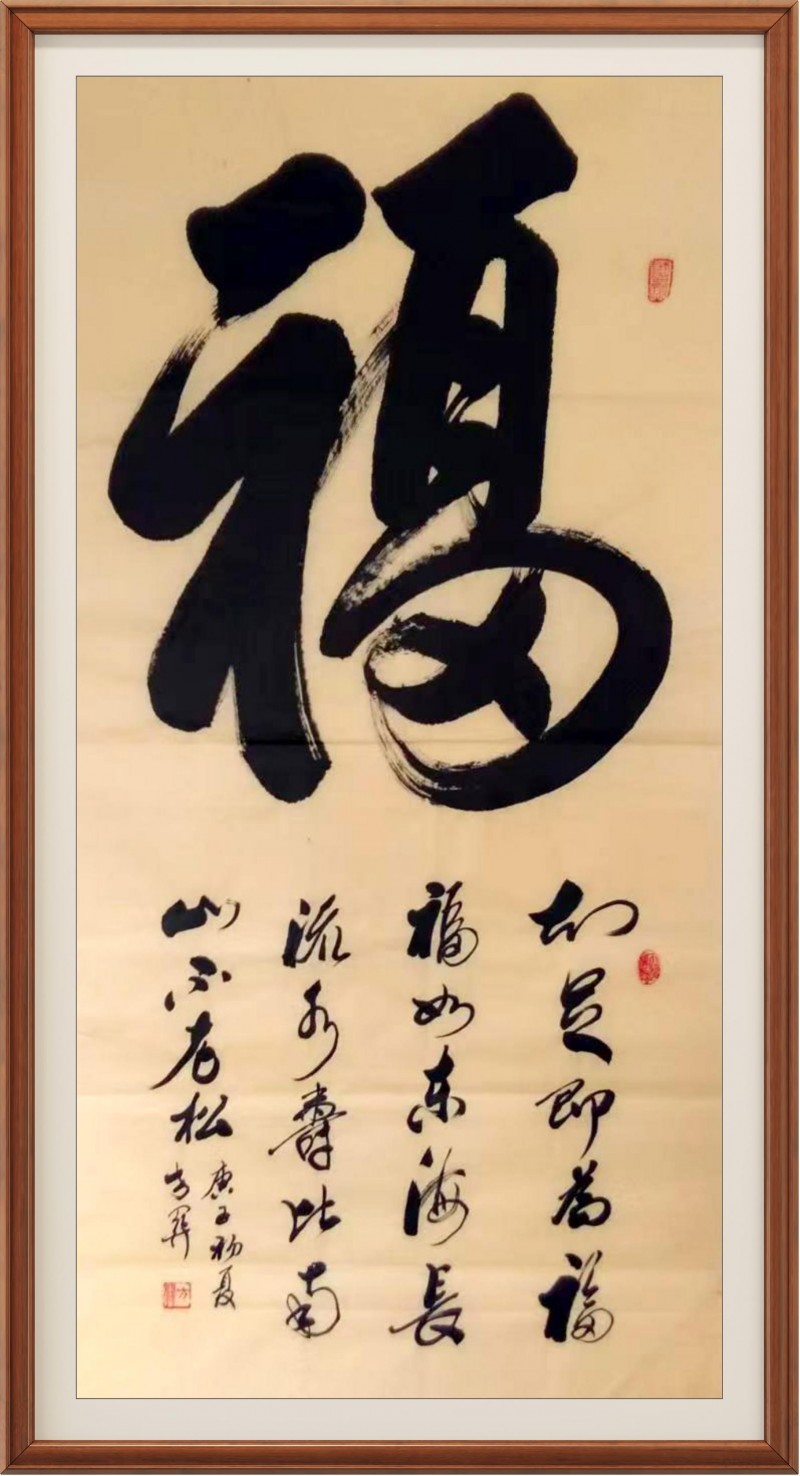 福
知足即為福
福如东海長
流水壽比南
山不老松
庚子初夏
方羿